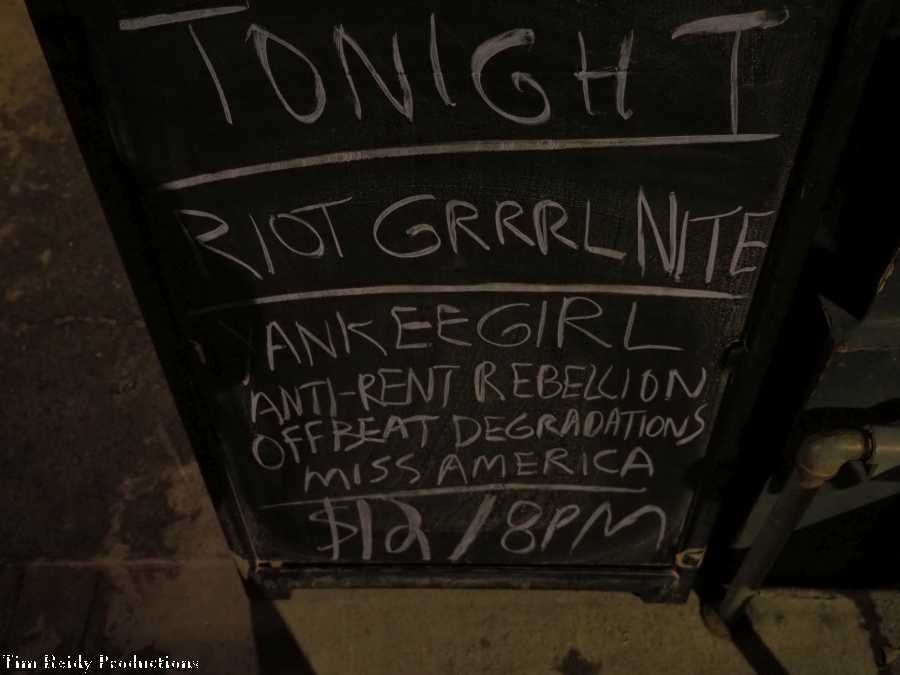 TONIGHT
RIOT GRRRL NITE
YANKEEGIRL
ANTI-RENT REBELLION
OFFBEAT DEGRADATIONS
MISS AMERICA
$12/8PM
Tim Reidy Productions